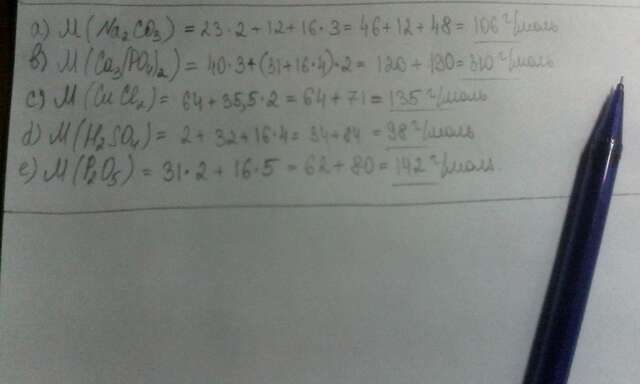 a) M(Na₂CO₃) = 23·2+12+16·3= 46+12+48= 106 г/моль
b) M(Ca₃(PO₄)₂) = 40·3+(31+16·4)·2= 120+190=310 г/моль
c) M(CuCl₂)= 64+35,5·2= 64+71= 135 г/моль
d) M(H₂SO₄)= 2+32+16·4= 34+64=98 г/моль
e) M(P₂O₅) = 31·2+16·5= 62+80= 142 г/моль.